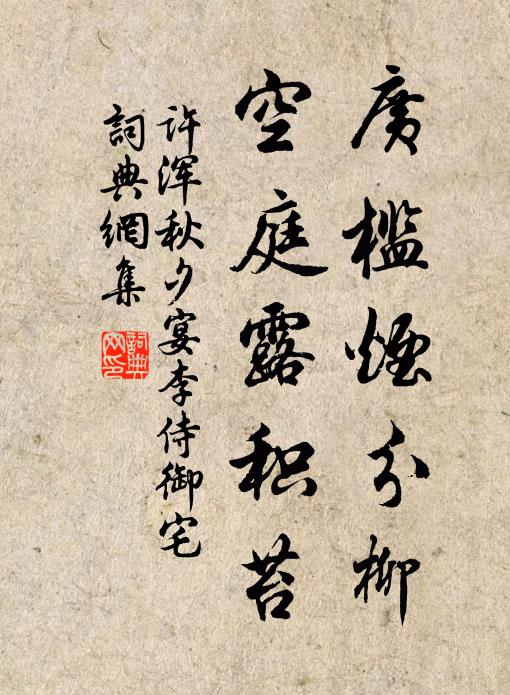 廣檻煙分柳
空庭露积苔
许浑秋夕宴李侍御宅
詞典網集
詞典网印